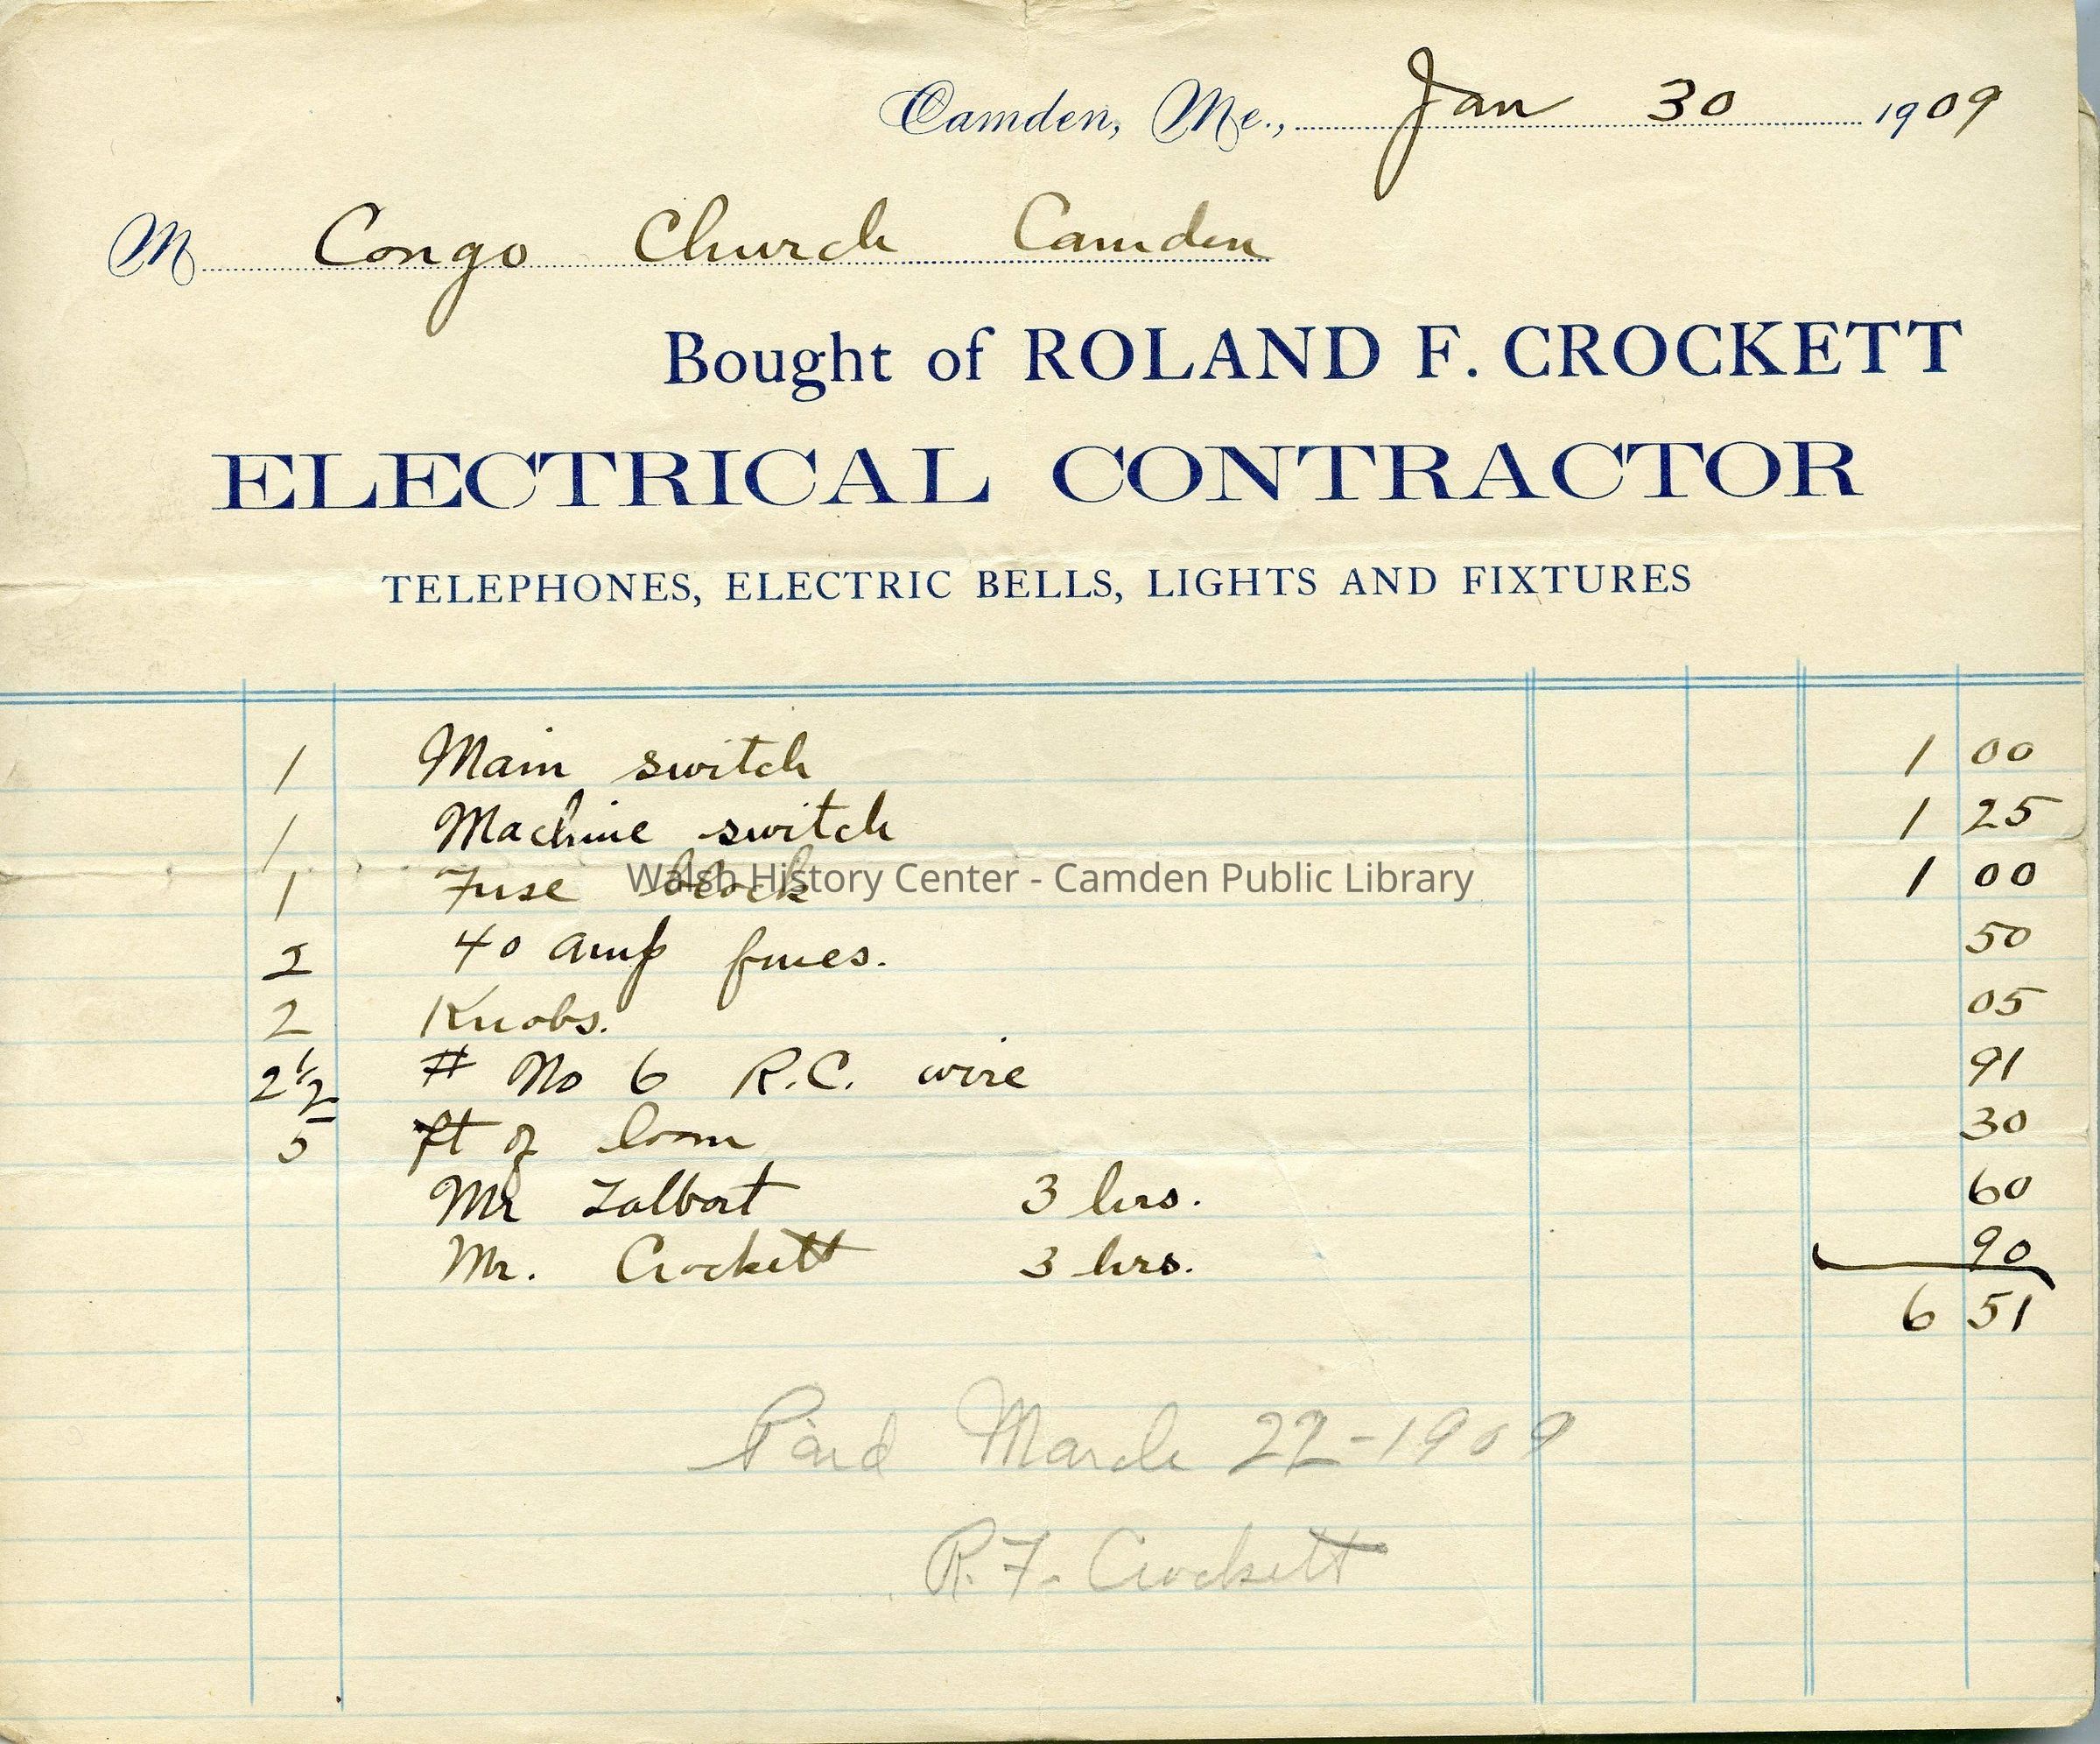 Camden, Me., Jan 30 1909
M Congo Church Camden
Bought of ROLAND F. CROCKETT
ELECTRICAL CONTRACTOR
TELEPHONES, ELECTRIC BELLS, LIGHTS AND FIXTURES
1 Main switch 1 00
1 Machine switch 1 25
1 Fuse block 1 00
Walsh History Center - Camden Public Library
2 40 amp fuses. 50
2 Knobs. 05
2 1/2 # No 6 R.C. wire 91
5 ft of loom 30
Mr Talbort 3 hrs. 60
Mr. Crockett 3 hrs. 90
6 51
Paid March 22-1909
R.F. Crockett